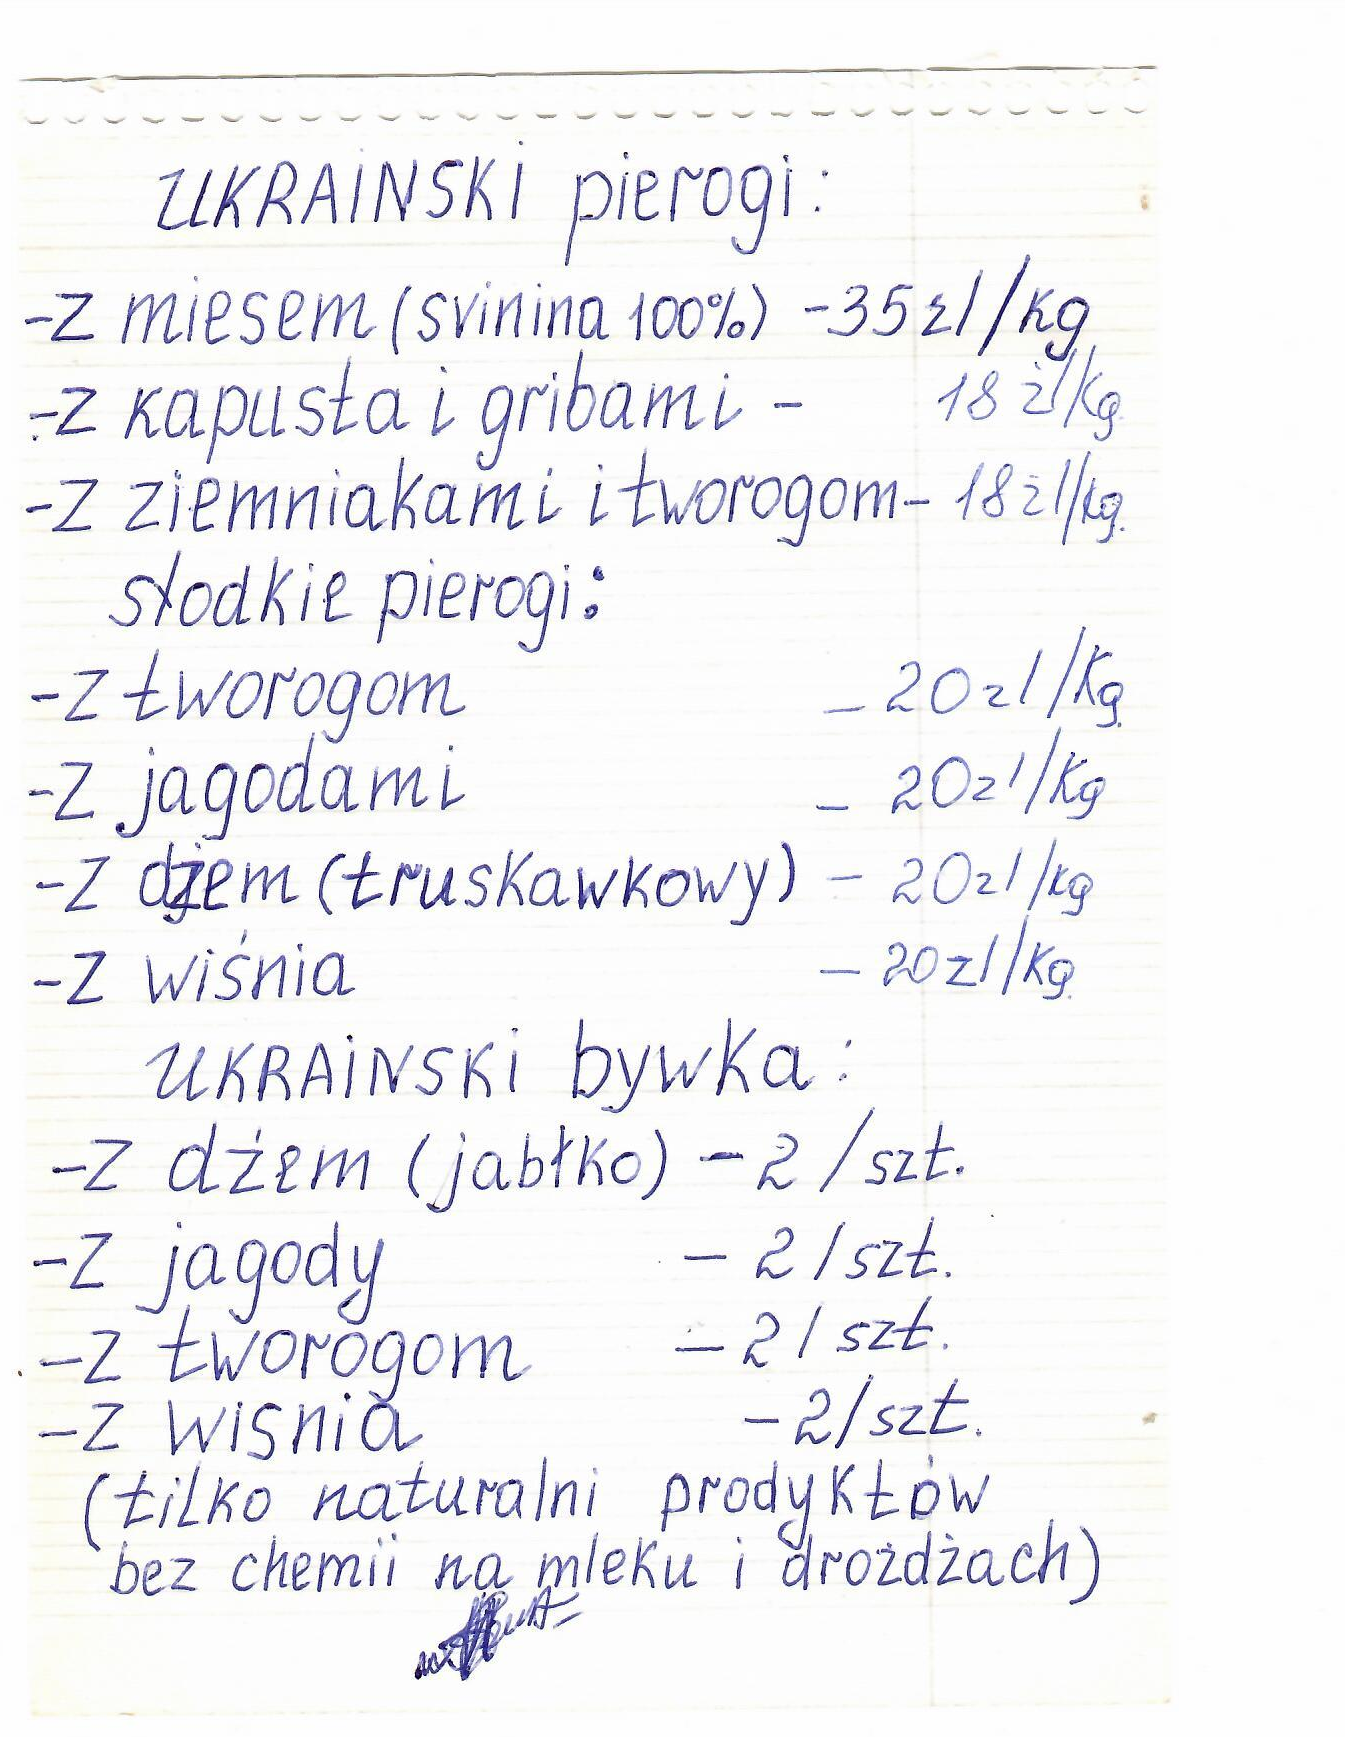 UKRAINSKI pierogi:
-Z miesem (svinina 100%) -35 zl/kg
-Z kapusta i gribami - 18 żl/kg.
-Z ziemniakami i tworogom- 18 żl/kg.
słodkie pierogi:
-Z tworogom - 20 zl/kg.
-Z jagodami - 20 zl/kg
-Z dżem (truskawkowy) - 20 zl/kg
-Z wiśnia - 20 zl/kg.
UKRAINSKI bywka:
-Z dżem (jabłko) - 2/szt.
-Z jagody - 2/szt.
-Z tworogom - 2/szt.
-Z wisnia - 2/szt.
(tilko naturalni prodyktów
bez chemii na mleku i drożdżach)